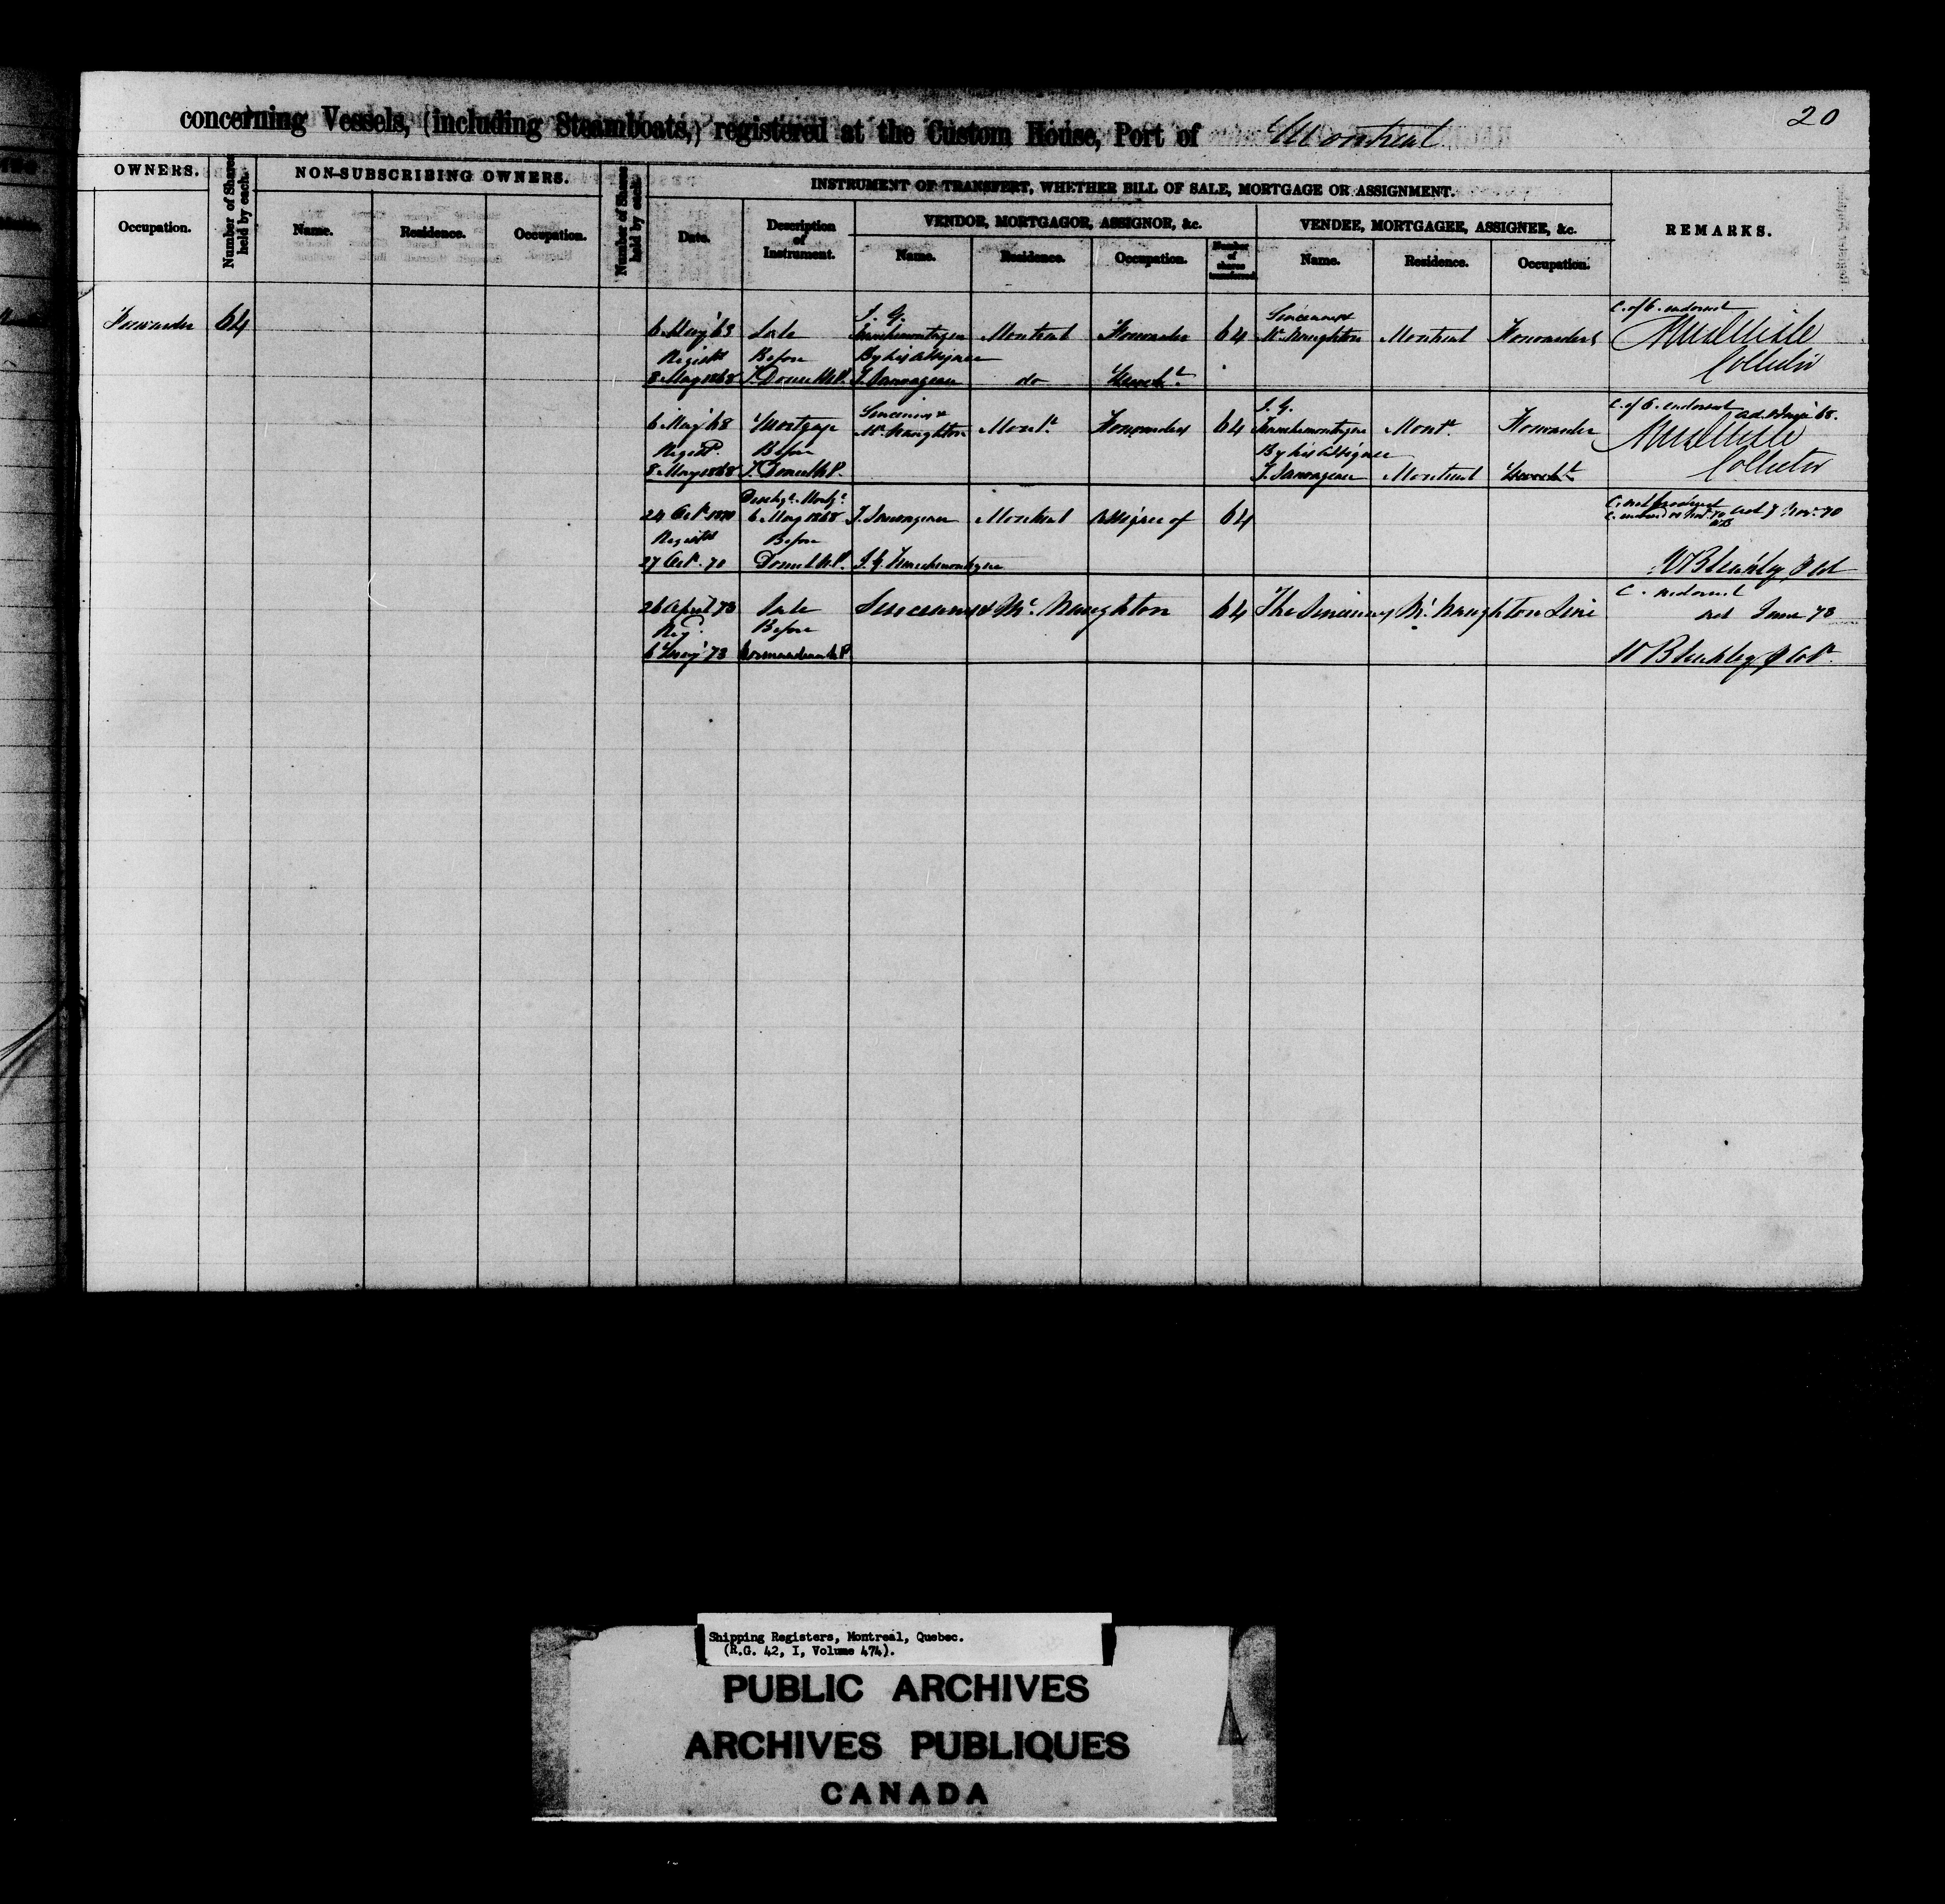 20
concerning Vessels, (including Steamboats,) registered at the Custom House, Port of Montreal
OWNERS.
Occupation.
Number of Shares held by each.
NON-SUBSCRIBING OWNERS.
Name. Residence. Occupation.
Number of Shares held by each.
INSTRUMENT OF TRANSFERT, WHETHER BILL OF SALE, MORTGAGE OR ASSIGNMENT.
Date.
Description of Instrument.
VENDOR, MORTGAGOR, ASSIGNOR, &c.
Name. Residence. Occupation.
Number of shares transferred
VENDEE, MORTGAGEE, ASSIGNEE, &c.
Name. Residence. Occupation.
REMARKS.
Forwarder 64
J. G. Sincennes & C. of E. endorsed
6 May '68 Sale Montreal Forwarder 64 McNaughton Montreal Forwarders
Registd Before By his Assignee
8 May 1868 T. Doucet N.P. T. Sauvageau do Mercht Collector
Sincennes & J. G. C. of E. endorsed
6 May '68 Mortgage McNaughton Montl Forwarders 64 Montl Forwarder
Registd Before By his Assignee
8 May 1868 T. Doucet N.P. T. Sauvageau Montreal Mercht Collector
Dischge Mortge
24 Oct 1870 6 May 1868 T. Sauvageau Montreal Assignee of 64
Registd Before
27 Oct. 70 Doucet N.P. J. G. W Bleakley
26 April 73 Sale Sincennes & McNaughton 64 The Sincennes McNaughton Line C. endorsed
Regd Before June 73
6 May '73 N.P. W Bleakley
Shipping Registers, Montreal, Quebec.
(R.G. 42, I, Volume 474).
PUBLIC ARCHIVES
ARCHIVES PUBLIQUES
CANADA